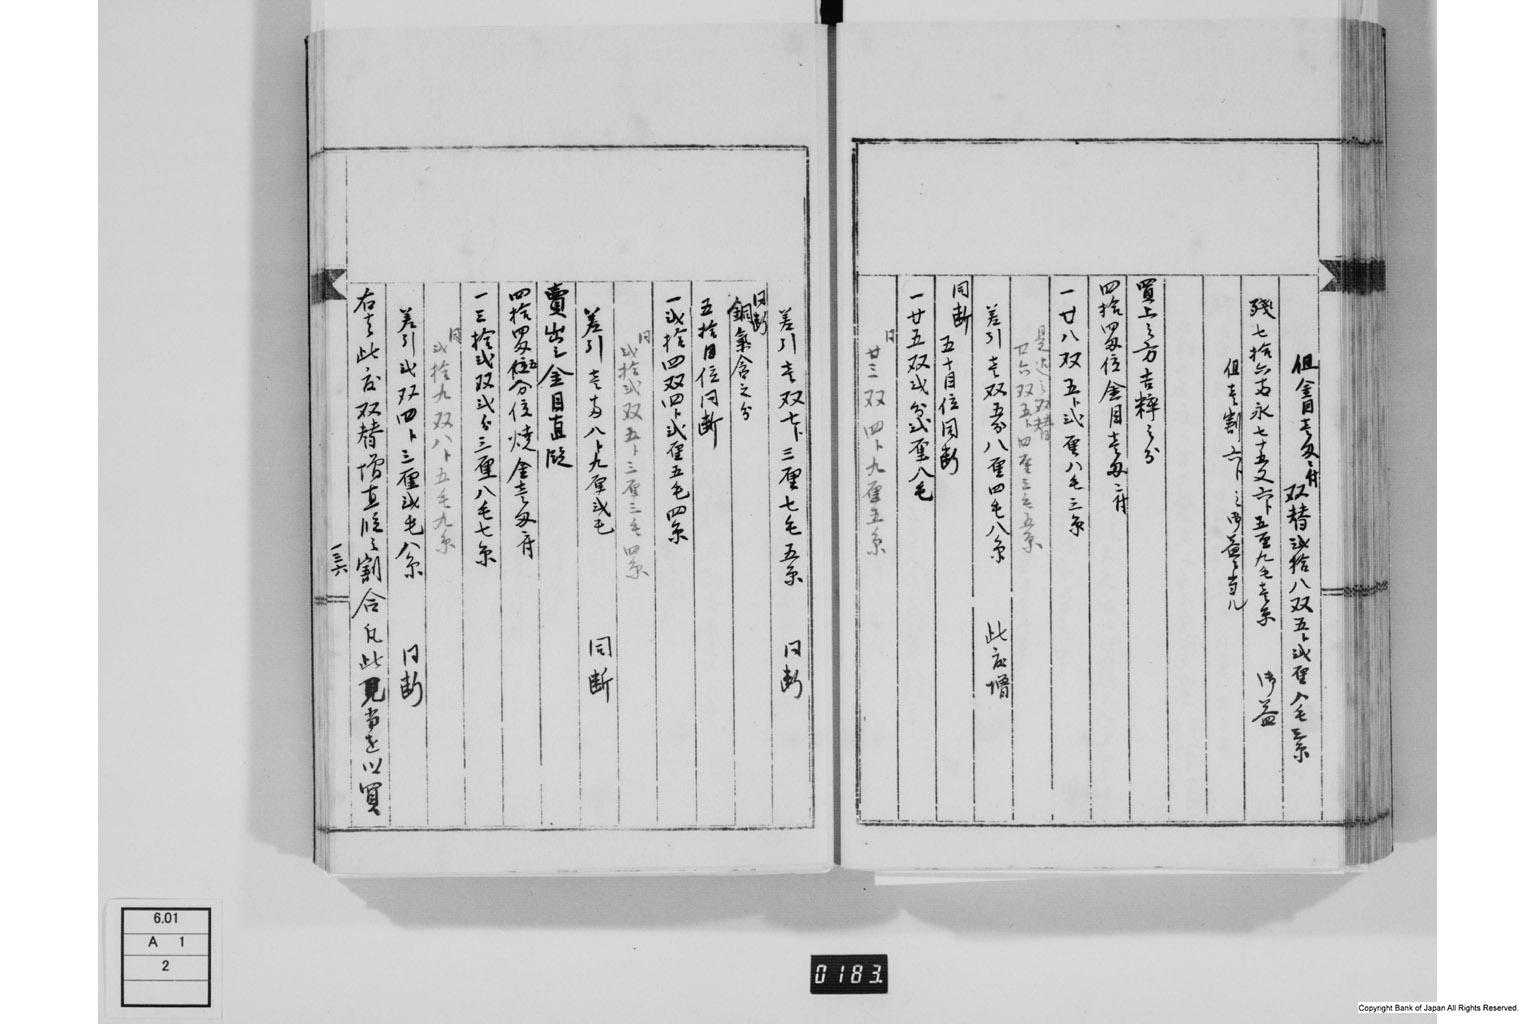 但金目壱匁ニ付 双替弐拾八双五卜弐厘八毛三糸
残七拾六両永七十五文六卜五厘九毛壱糸 御益
但壱割六卜之御益ニ当ル
買上之方吉粹之分
四拾四匁位金目壱匁ニ付
一廿八双五卜弐厘八毛三糸
是迄之双替
廿六双五卜四厘三毛五糸
差引壱双五分八厘四毛八糸 此度増
同断
五十目位同断
一廿五双弐分弐厘八毛
同
廿三双四卜九厘五糸
差引壱双七卜三厘七毛五糸 同断
同断
銅氣含之分
五拾目位同断
一弐拾四双四卜弐厘五毛四糸
同
弐拾弐双五卜三厘三毛四糸
差引壱匁八卜九厘弐毛 同断
賣出之金目直段
四拾四匁五分位焼金壱匁ニ付
一三拾弐双弐分三厘八毛七糸
同
弐拾九双八卜五毛九糸
差引弐双四卜三厘弐毛八糸 同断
右者此度双替増直段之割合凡此見当を以買
一三六
6.01
A 1
2
0183
Copyright Bank of Japan All Rights Reserved.